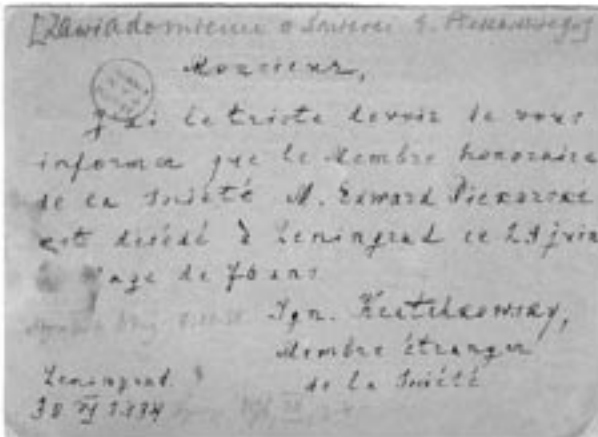 [Zawiadomienie o śmierci E. Piekarskiego]
Monsieur,
J'ai le triste devoir de vous
informer que le Membre honoraire
de la Société M. Edward Piekarski
est décédé à Leningrad ce 29 juin
à l'age de 76 ans
Ign.
Membre étranger
de la Société
Leningrad
30 VI 1934